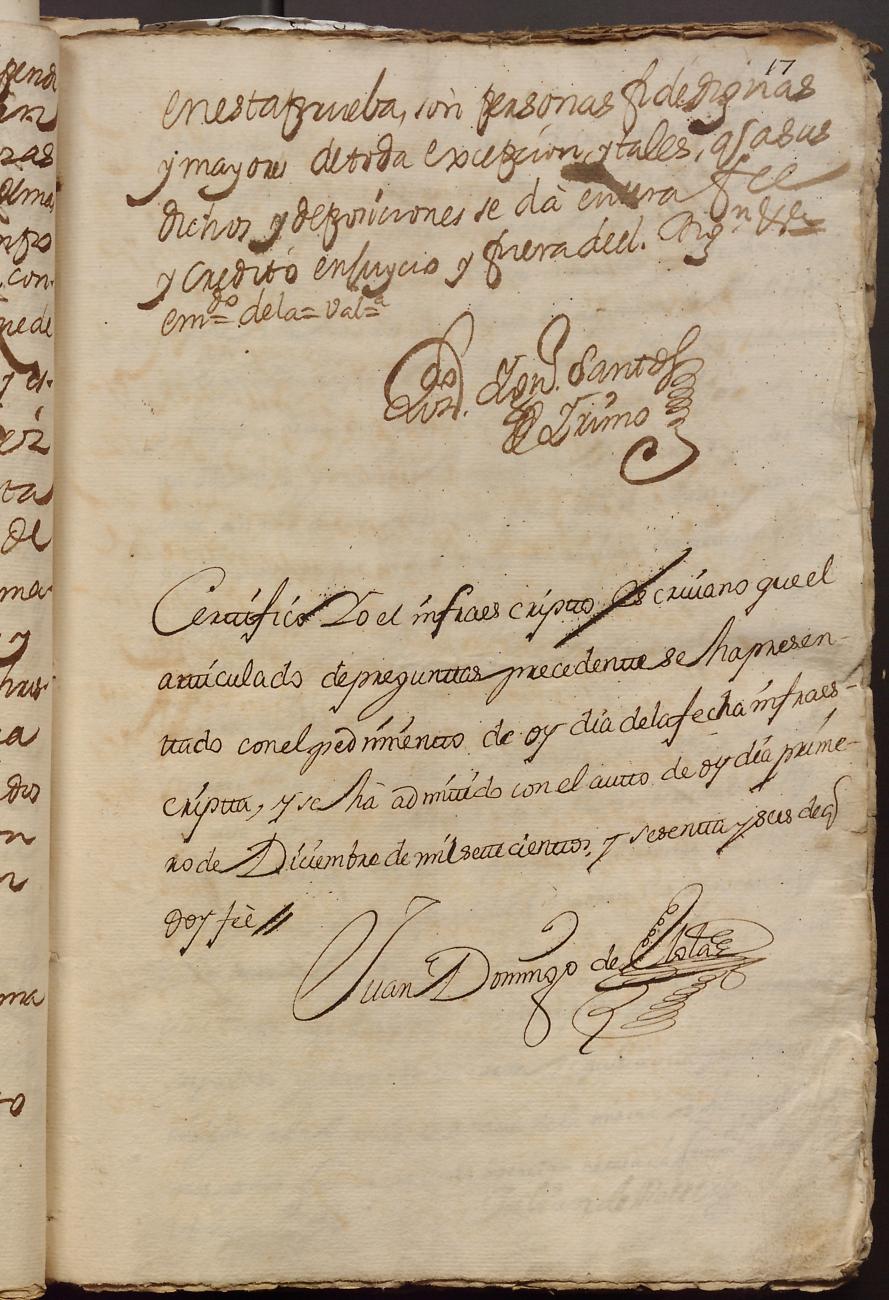 17
en esta prueba, son personas fidedignas
y mayores de toda excepcion, y tales, q̃ a sus
dichos y deposiciones se dà entera fee
y credito en juycio y fuera de el.
em.do = de la = Val.a
Santos
Certifico Yo el infraescriptto Escriuano que el
artticulado de preguntas precedentte se ha presen-
ttado con el pedimentto de oy dia de la fecha infraes-
criptta, y se hà admitido con el autto de oy dia prime-
ro de Diciembre de mil settecienttos, y sesentta y seis de q̃
doy feè //
Juan Domingo de